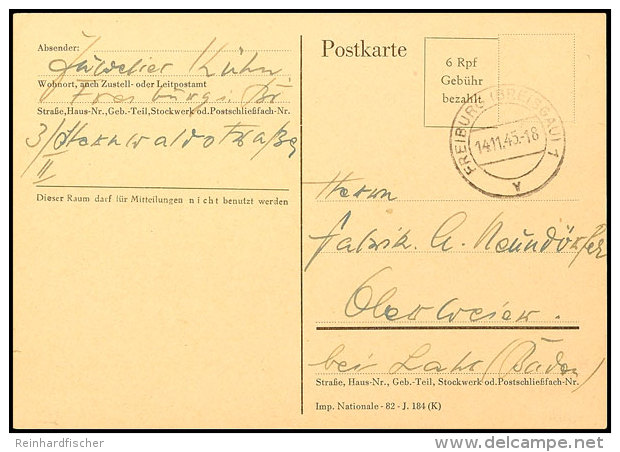 Absender:
Juwelier Kühn
Wohnort, auch Zustell- oder Leitpostamt
Freiburg i. Br.
Straße, Haus-Nr., Geb.-Teil, Stockwerk od. Postschließfach-Nr.
3/Sternwaldstraße
II
Dieser Raum darf für Mitteilungen nicht benutzt werden
Postkarte
6 Rpf
Gebühr
bezahlt
FREIBURG (BREISGAU) 1
14.11.45.-18
Herrn
Fabrik. A. Neundörfer
Oberweier.
bei Lahr (Baden)
Straße, Haus-Nr., Geb.-Teil, Stockwerk od. Postschließfach-Nr.
Imp. Nationale - 82 - J. 184 (K)
Reinhardfischer
delcampe.net